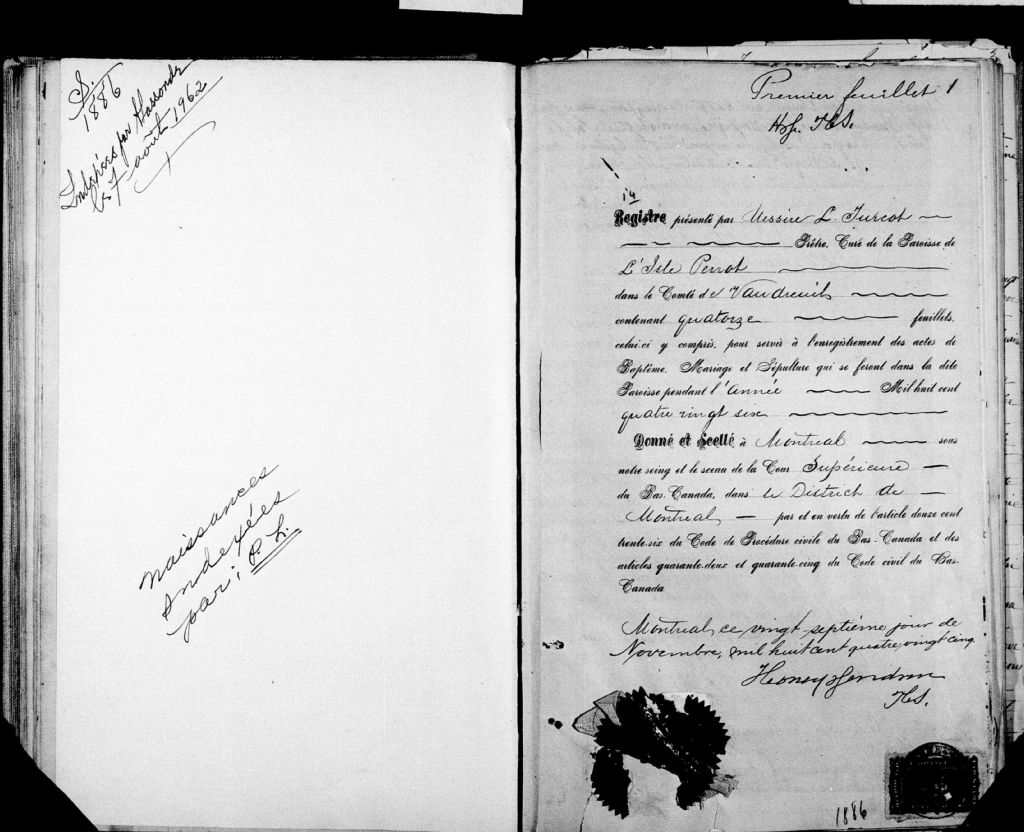 S.
1886
le 7 août 1962
naissances
indexées
par: P. L.
Premier feuillet 1
14
Registre présenté par Messire L. Turcot
Prêtre, Curé de la Paroisse de
L'Isle Perrot
dans le Comté de Vaudreuil
contenant quatorze feuillets,
celui-ci y compris, pour servir à l'enregistrement des actes de
Baptême, Mariage et Sépulture qui se feront dans la dite
Paroisse pendant l'Année Mil huit cent
quatre vingt six
Donné et Scellé à Montreal sous
notre seing et le sceau de la Cour Supérieure
du Bas-Canada, dans le District de
Montreal, par et en vertu de l'article douze cent
trente-six du Code de Procédure civile du Bas-Canada et des
articles quarante-deux et quarante-cinq du Code civil du Bas-
Canada
Montreal, ce vingt septième jour de
Novembre, mil huit cent quatre vingt cinq
1886